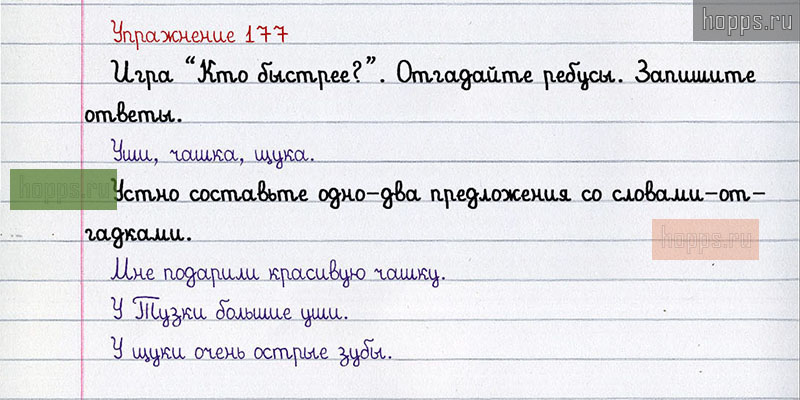 hopps.ru
Упражнение 177
Игра “Кто быстрее?”. Отгадайте ребусы. Запишите
ответы.
Уши, чашка, щука.
hopps.ru
Устно составьте одно-два предложения со словами-от-
гадками.
hopps.ru
Мне подарили красивую чашку.
У Тузки большие уши.
У щуки очень острые зубы.